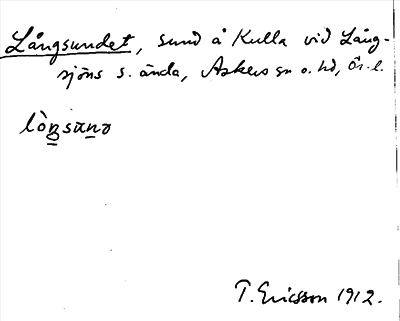 Långsundet, sund å Kulla vid Lång-
sjöns s. ända, Askers sn o. hd, Ör. l.
lòŋsuno
T. Ericsson 1912.